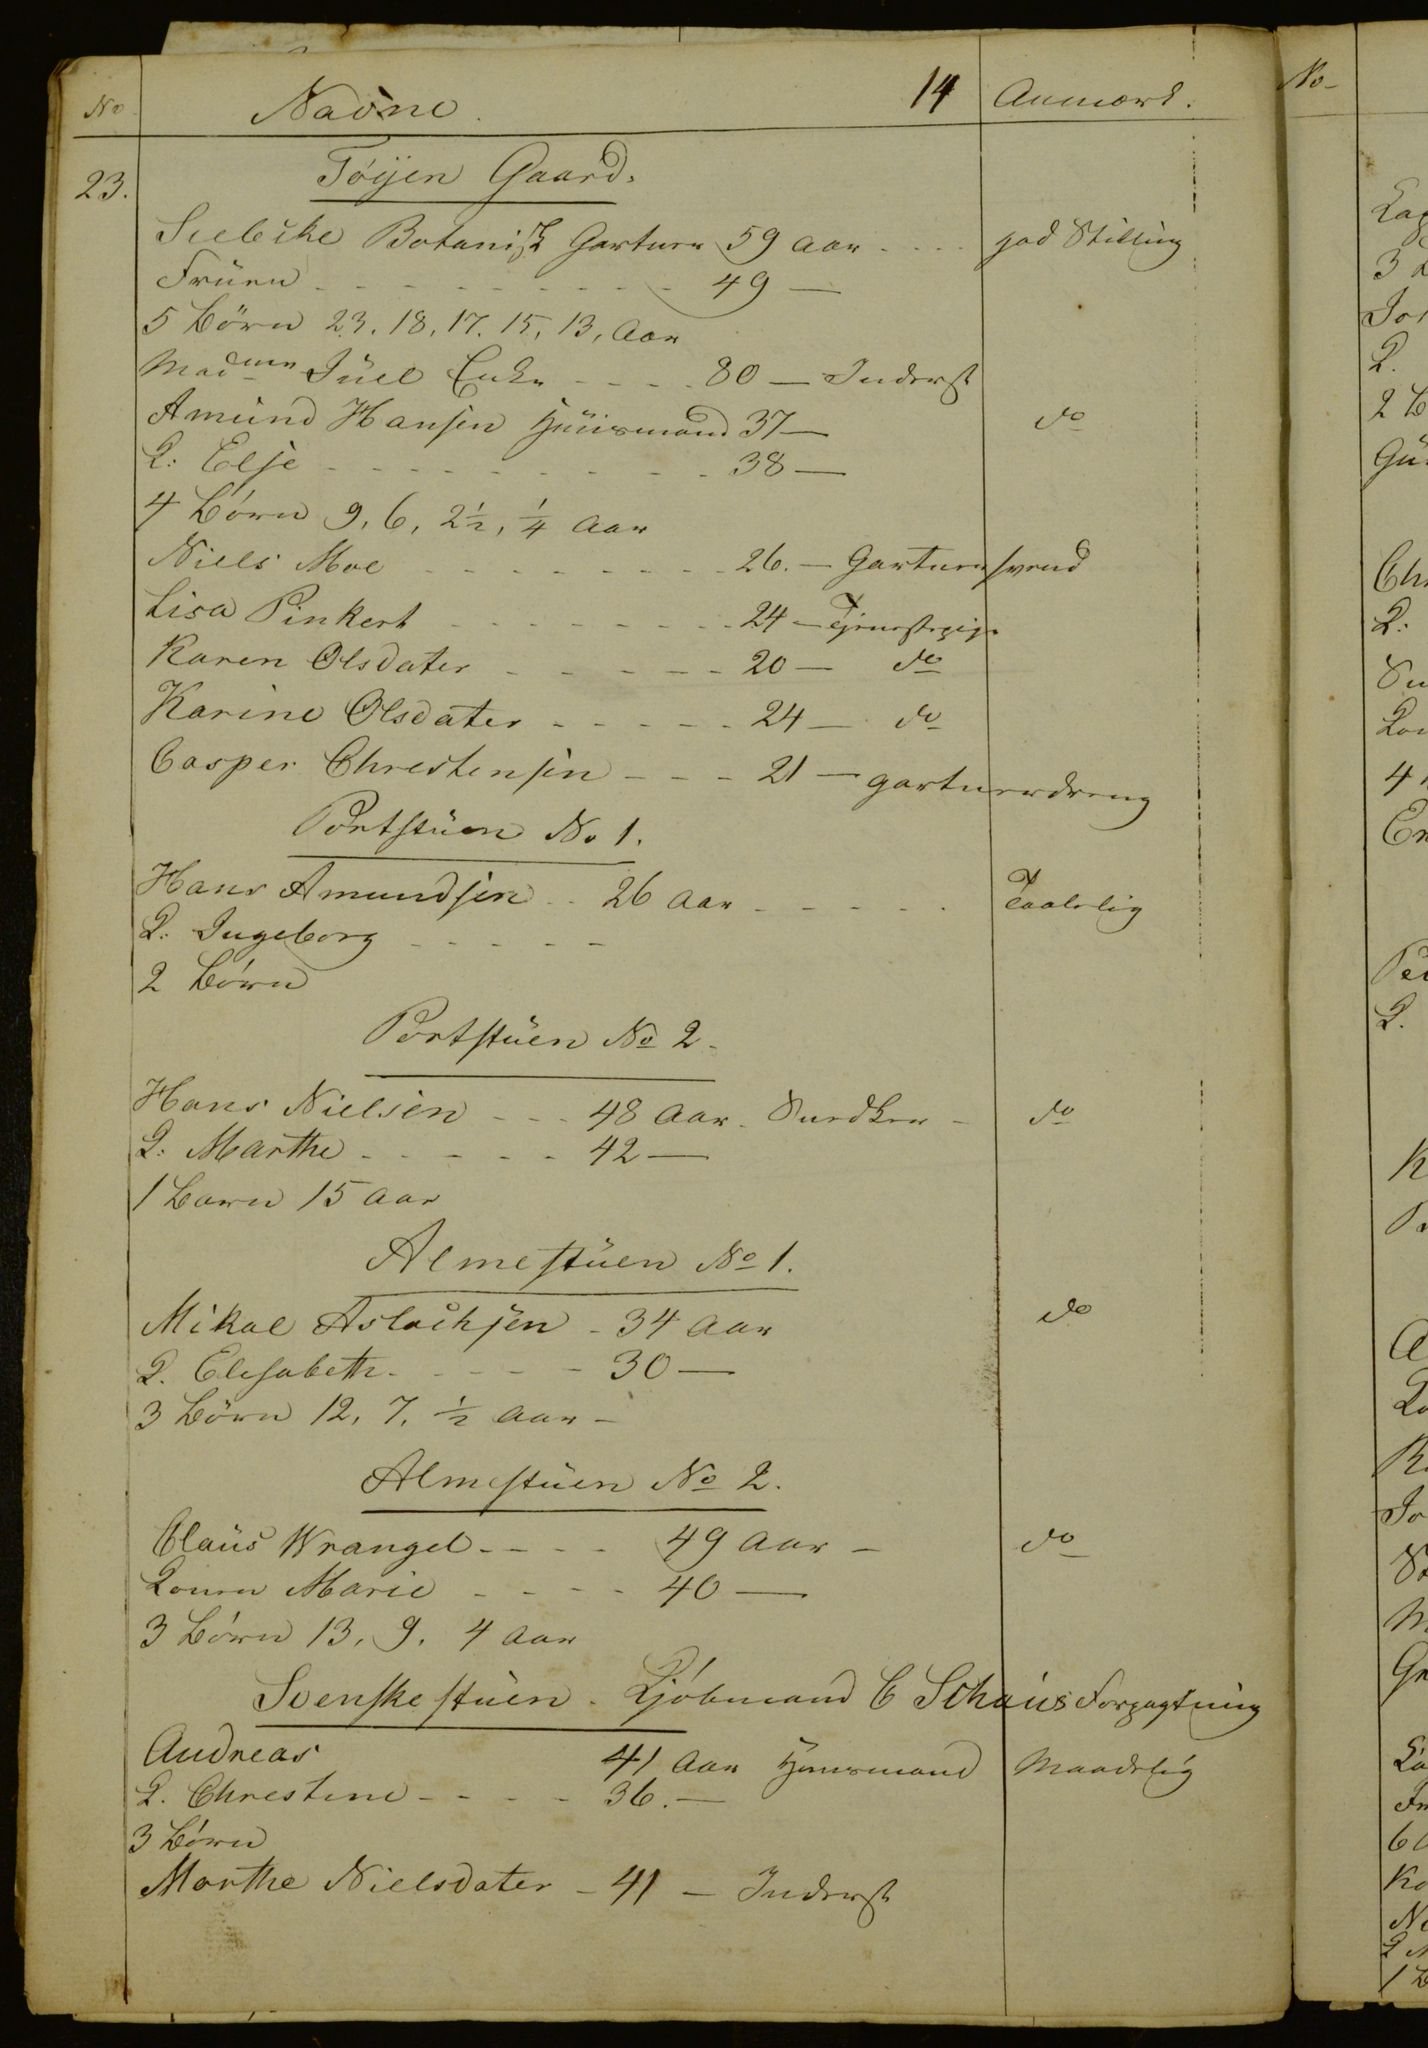 No Navne. 14 Anmærk.
23. Tøÿen Gaard.
Siebcke Botanisk Gartner 59 Aar - - - - god Stilling
Früen - - - - - - - - 49 —
5 Börn 23, 18, 17, 15, 13, Aar
Madmm Jüel Enke - - - - 80 — Inderst
Amünd Hansen Hüüsmand 37 — do
Q: Elje - - - - - - - - - 38 —
4 Börn 9, 6, 2½, ¼ Aar
Niels Moe - - - - - - - - 26. — Gartnersvend
Lisa Pinkert - - - - - - - - 24 — Tjenestepige
Karen Olsdater - - - - - - 20 — do
Karine Olsdater - - - - - 24 — do
Casper Chrestensen - - - 21 — gartnerdreng
Portstüen No 1.
Hans Amundsen - - 26 Aar - - - - - Taalelig
Q: Ingeborg - - - - -
2 Börn
Portstüen No 2.
Hans Nielsen - - - 48 Aar. Snedker - do
Q: Marthe - - - - - 42 —
1 Barn 15 Aar
Almestüen No 1.
Mikal Aslachsen - 34 Aar do
Q. Elisabeth - - - - 30 —
3 Börn 12, 7, ½ Aar -
Almestüen No 2.
Claüs Wrangel - - - - 49 Aar - do
Konen Marie - - - - 40 —
3 Börn 13, 9, 4 Aar
Svenskestüen. Kjöbmand C Schaüs Forpagtning
Andreas 41 Aar Huusmand Maadelig
Q. Chrestine - - - - 36. —
3 Börn
Marthe Nielsdater - 41 — Inderst